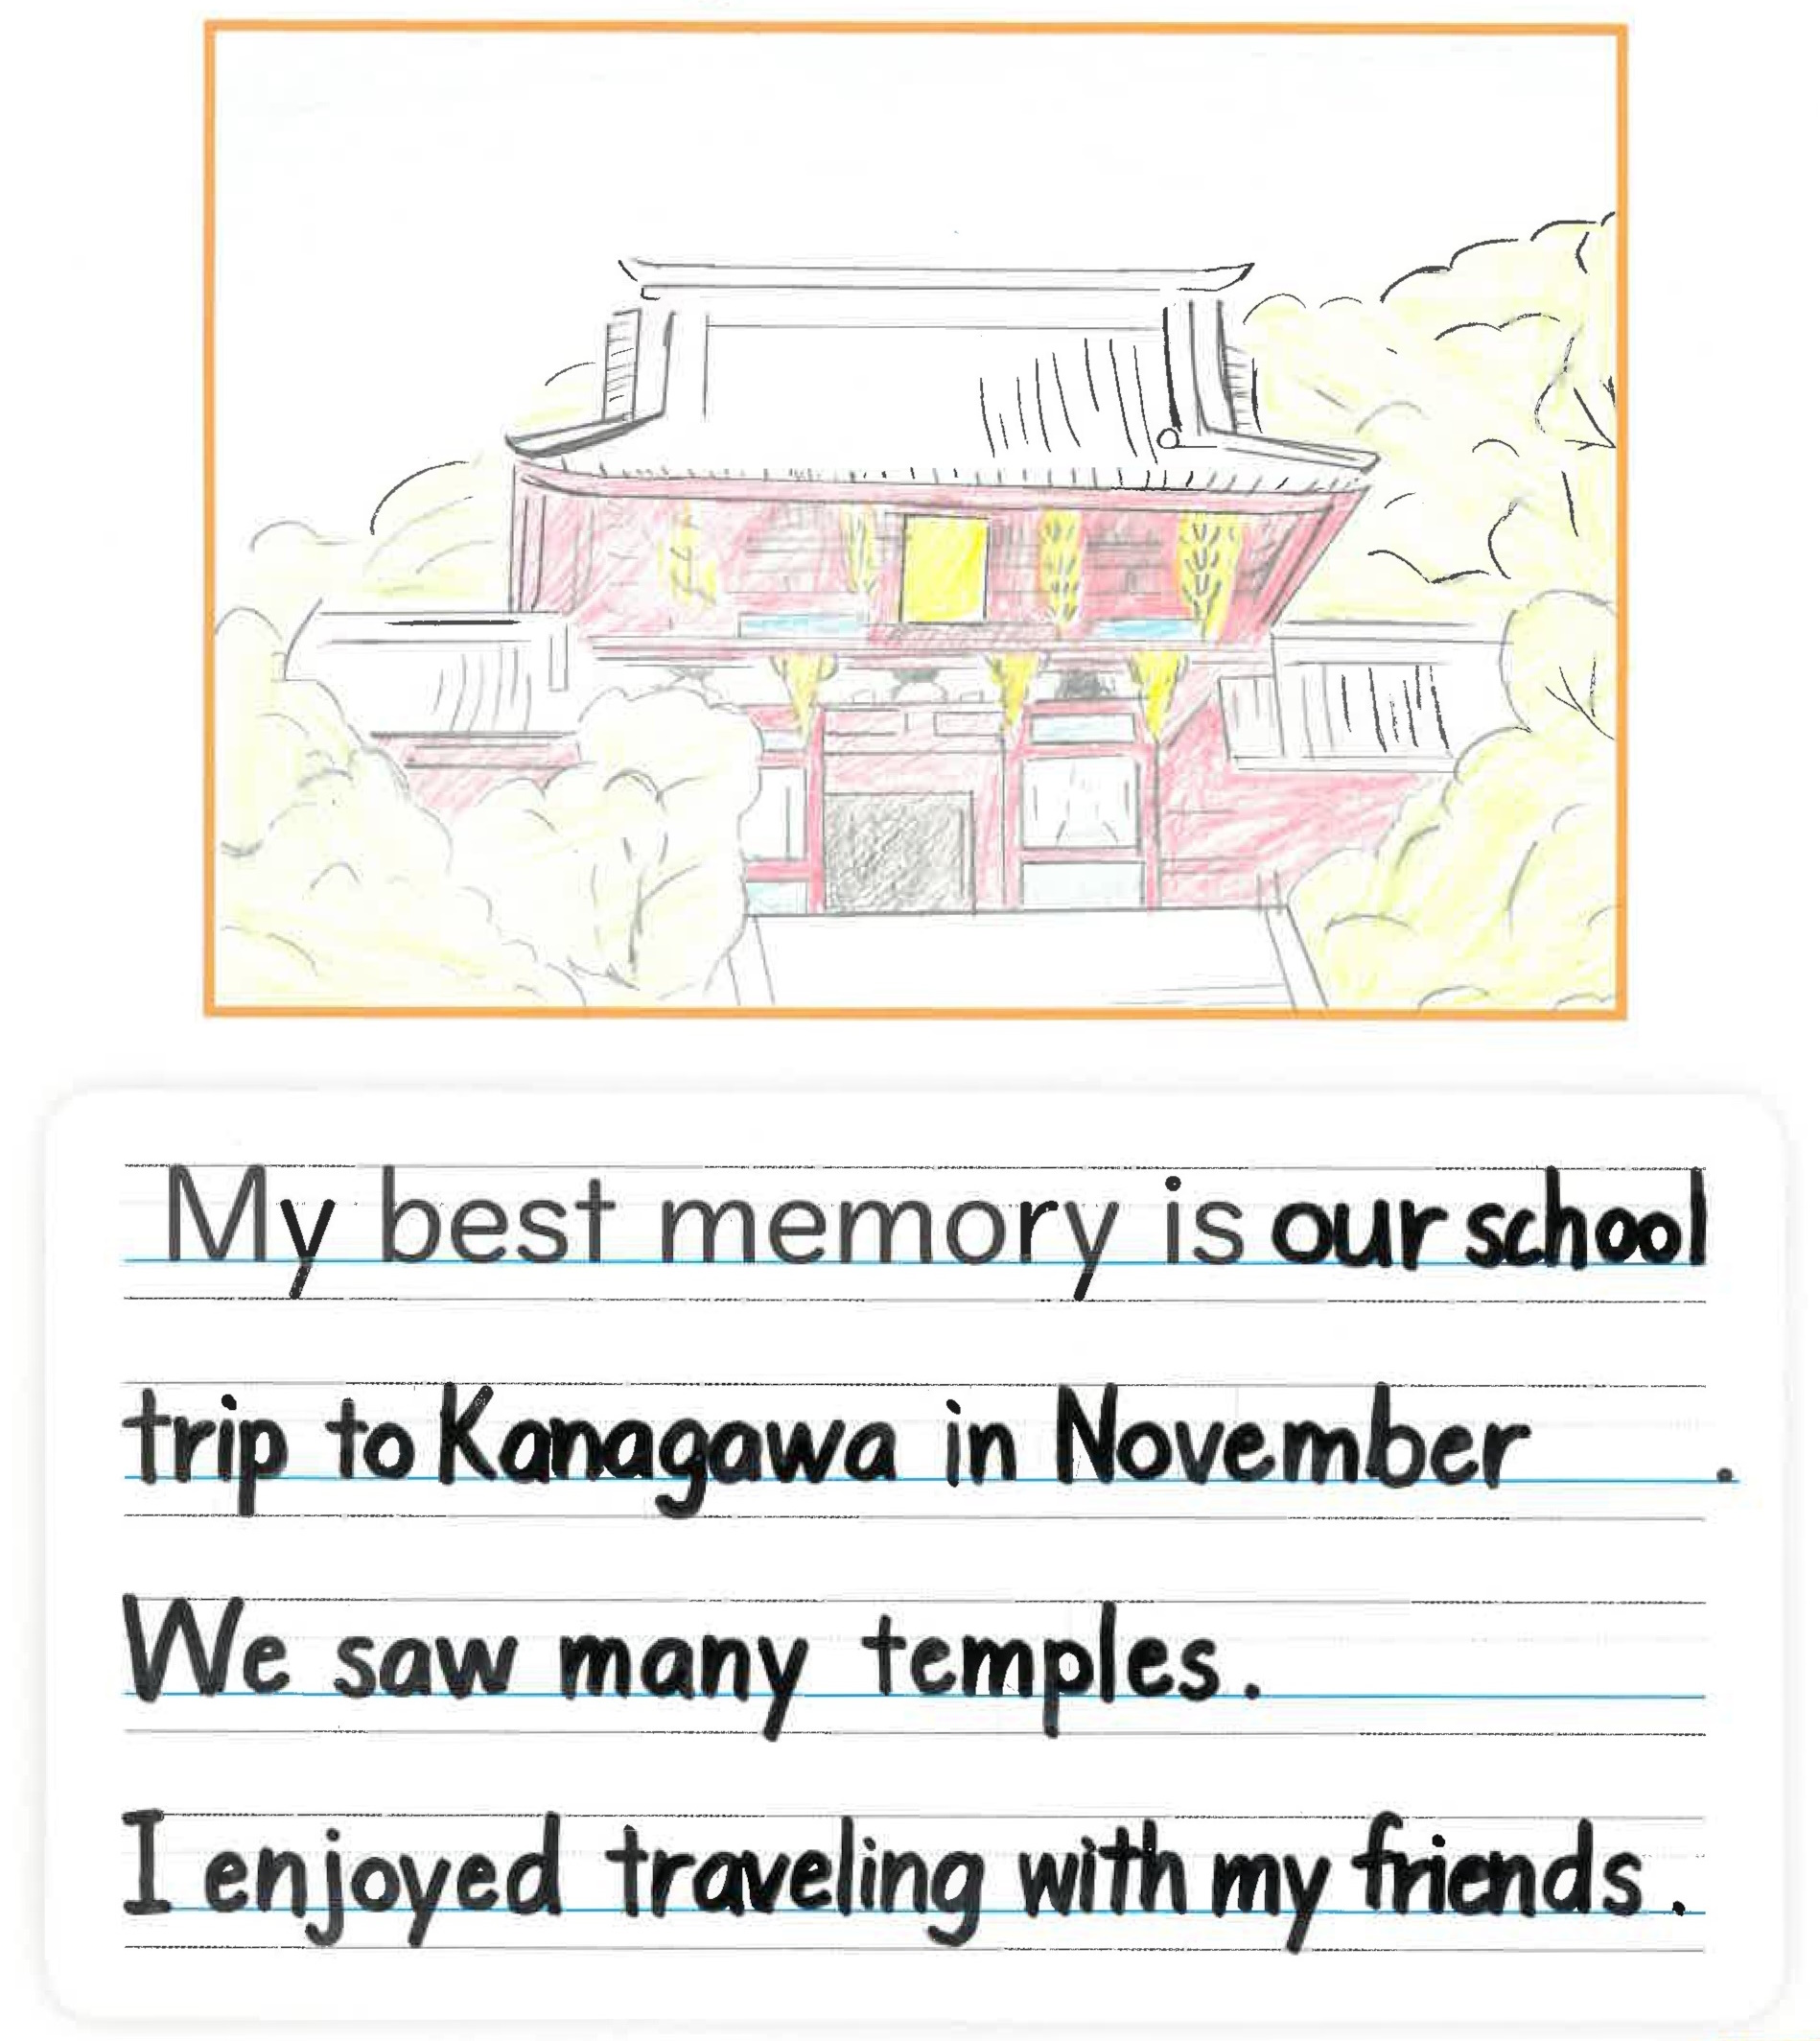 My best memory is our school
trip to Kanagawa in November .
We saw many temples.
I enjoyed traveling with my friends.